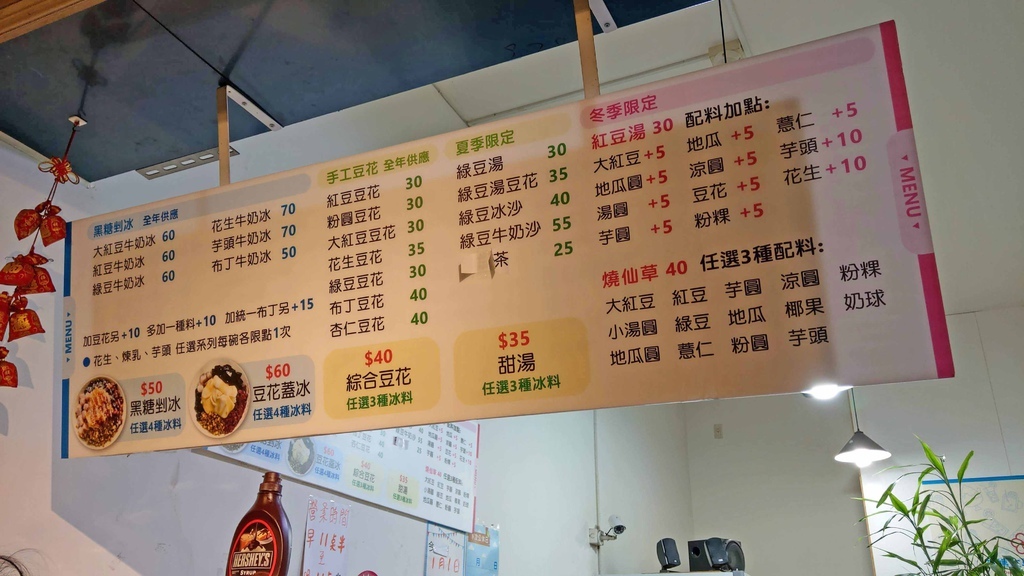 黑糖剉冰 全年供應
大紅豆牛奶冰 60
紅豆牛奶冰 60
綠豆牛奶冰 60
花生牛奶冰 70
芋頭牛奶冰 70
布丁牛奶冰 50
加豆花另+10 多加一種料+10 加統一布丁另+15
●花生、煉乳、芋頭 任選系列每碗各限點1次
$50
黑糖剉冰
任選4種冰料
$60
豆花蓋冰
任選4種冰料
手工豆花 全年供應
紅豆豆花 30
粉圓豆花 30
大紅豆豆花 30
花生豆花 35
綠豆豆花 30
布丁豆花 40
杏仁豆花 40
$40
綜合豆花
任選3種冰料
夏季限定
綠豆湯 30
綠豆湯豆花 35
綠豆冰沙 40
綠豆牛奶沙 55
茶 25
$35
甜湯
任選3種冰料
冬季限定
紅豆湯 30 配料加點:
大紅豆+5 地瓜+5 薏仁+5
地瓜圓+5 涼圓+5 芋頭+10
湯圓+5 豆花+5 花生+10
芋圓+5 粉粿+5
燒仙草 40 任選3種配料:
大紅豆 紅豆 芋圓 涼圓 粉粿
小湯圓 綠豆 地瓜 椰果 奶球
地瓜圓 薏仁 粉圓 芋頭
MENU
MENU
HERSHEY'S
SYRUP
營業時間
早11点半
1月1